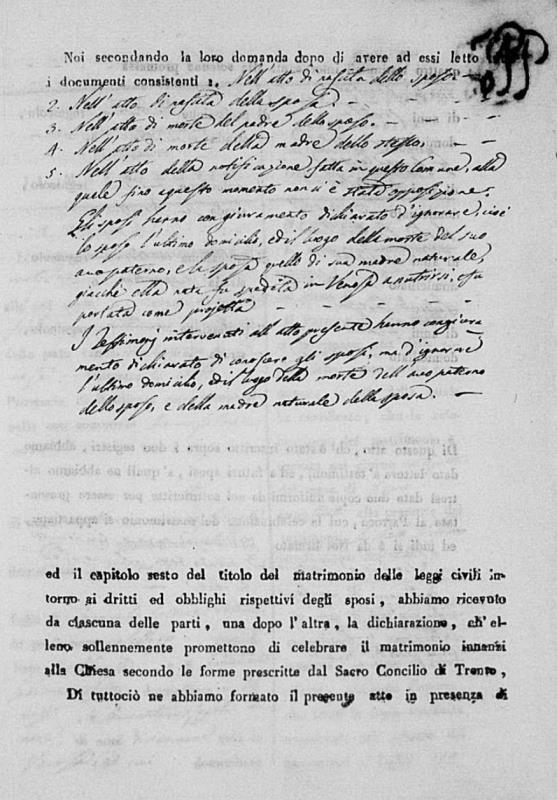 Noi secondando la loro domanda dopo di avere ad essi letto
i documenti consistenti 1. Nell'atto di nascita dello sposo
2. Nell'atto di nascita della sposa.
3. Nell'atto di morte del padre dello sposo.
4. Nell'atto di morte della madre dello stesso,
5. Nell'atto della notificazione fatta in questo Comune, alla
quale fino a questo momento non ci è stata opposizione.
Gli sposi hanno con giuramento dichiarato d'ignorare, cioè
lo sposo l'ultimo domicilio, ed il luogo della morte del suo
avo paterno, e la sposa quello di sua madre naturale,
giacchè ella nata fu spedita in Venosa a nutrirsi,
portata come projetta
I Testimonj intervenuti all'atto presente hanno con giura
mento dichiarato di conoscere gli sposi, ma d'ignorare
l'ultimo domicilio, ed il luogo della morte dell'avo paterno
dello sposo, e della madre naturale della sposa.
ed il capitolo sesto del titolo del matrimonio delle leggi civili in-
torno ai dritti ed obblighi rispettivi degli sposi, abbiamo ricevuto
da ciascuna delle parti, una dopo l'altra, la dichiarazione, ch'el-
leno sollennemente promettono di celebrare il matrimonio innanzi
alla Chiesa secondo le forme prescritte dal Sacro Concilio di Trento,
Di tuttociò ne abbiamo formato il presente atto in presenza di